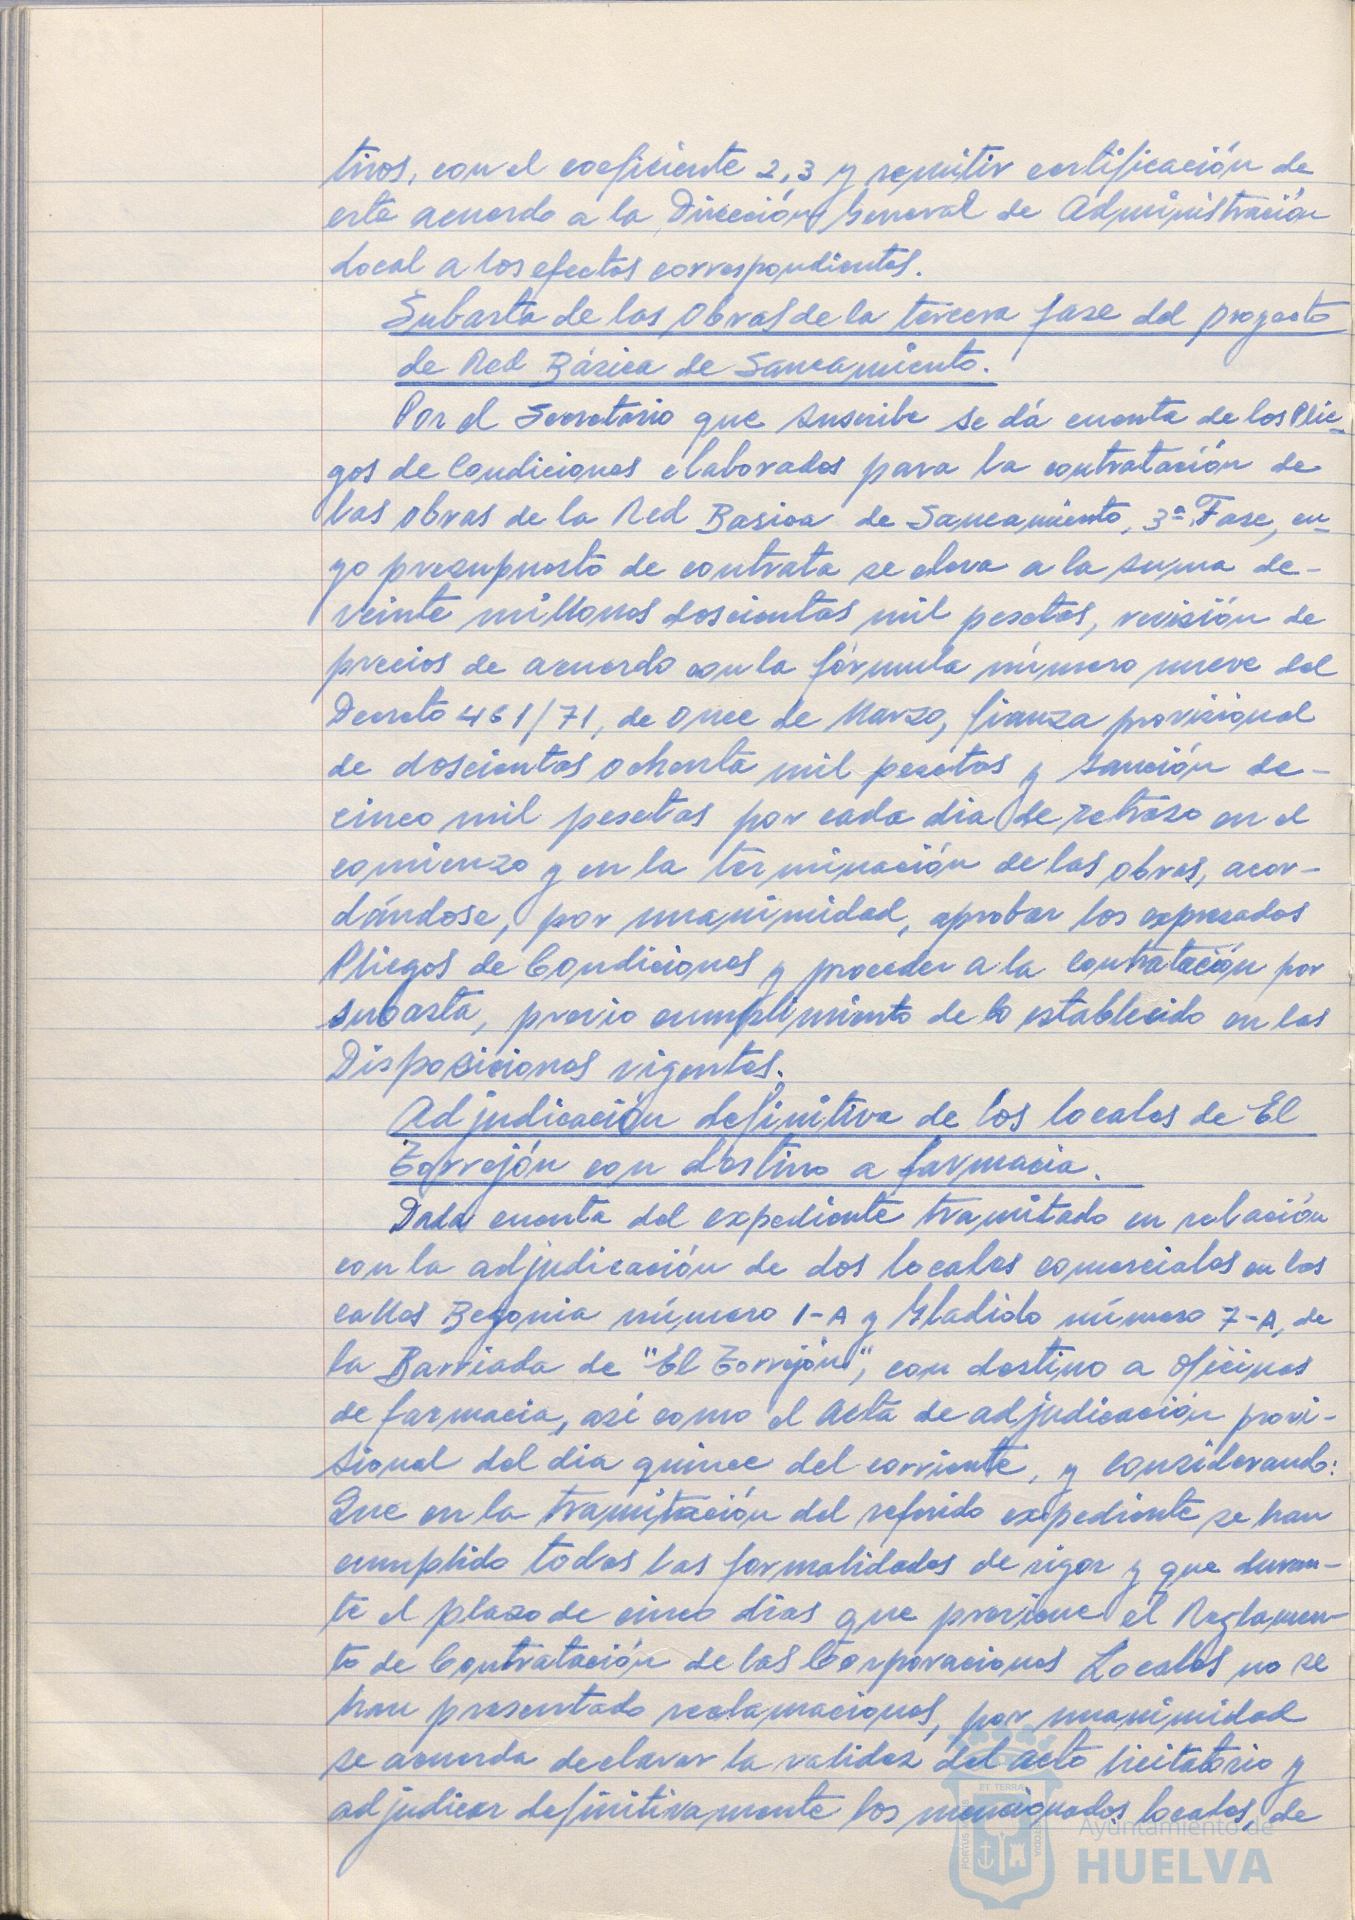 tivos, con el coeficiente 2,3 y remitir certificación de
este acuerdo a la Dirección General de Administración
Local a los efectos correspondientes.
Subasta de las Obras de la tercera fase del proyecto
de Red Básica de Saneamiento.
Por el Secretario que suscribe se dá cuenta de los Plie-
gos de Condiciones elaborados para la contratación de
las obras de la Red Basica de Saneamiento, 3ª Fase, cu-
yo presupuesto de contrata se eleva a la suma de-
veinte millones doscientas mil pesetas, revisión de
precios de acuerdo con la fórmula número nueve del
Decreto 461/71, de once de Marzo, fianza provisional
de doscientas ochenta mil pesetas y sanción de-
cinco mil pesetas por cada dia de retraso en el
comienzo y en la terminación de las obras, acor-
dándose, por unanimidad, aprobar los expresados
Pliegos de Condiciones y proceder a la contratación por
subasta, previo cumplimiento de lo establecido en las
Disposiciones vigentes.
Adjudicación definitiva de los locales de El
Torrejón con destino a farmacia.
Dada cuenta del expediente tramitado en relación
con la adjudicación de dos locales comerciales en las
calles Begonia número 1-A y Gladiolo número 7-A, de
la Barriada de "El Torrejón", con destino a oficinas
de farmacia, asi como el acta de adjudicación provi-
sional del dia quince del corriente, y considerando:
Que en la tramitación del referido expediente se han
cumplido todas las formalidades de rigor y que duran-
te el plazo de cinco dias que previene el Reglamen-
to de Contratación de las Corporaciones Locales no se
han presentado reclamaciones, por unanimidad
se acuerda declarar la validez del acto licitatorio y
adjudicar definitivamente los mencionados locales, de
ET TERRA
PORTUS
CUSTODIA
Ayuntamiento de
HUELVA